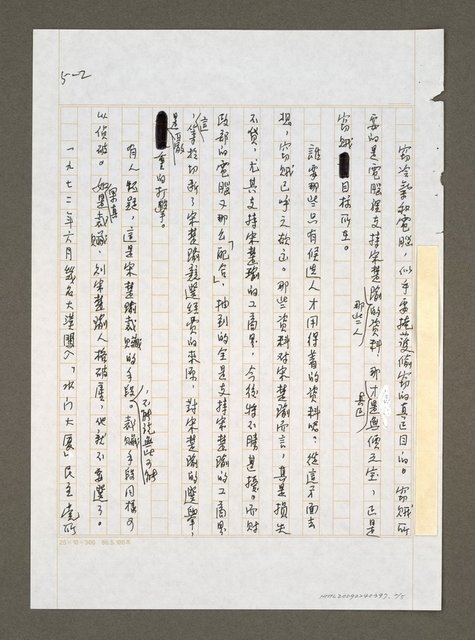 5-2
竊冷氣和電腦，似乎要掩護偷竊的真正目的。竊賊所
要的是電腦裡支持宋楚瑜的資料，那才是無價之寶，正是
那些人
真正
竊賊目標所在。
誰要那些只有候選人才用得著的資料呢？從這方面去
想，竊賊已呼之欲出。那些資料對宋楚瑜而言，真是損失
不貲，尤其支持宋楚瑜的工商界，今後將不勝其擾。而財
政部的電腦又那麼「配合」，抽到的全是支持宋楚瑜的工商界
這
，等於切斷了宋楚瑜競選經費的來源，對宋楚瑜的選舉，
是嚴
重的打擊。
有人質疑，這是宋楚瑜栽贓的手段。栽贓手段同樣可
，不能說無此可能
以偵破。如是栽贓，則宋楚瑜人格破產，他就不要選了。
果真
一九七二年六月幾名大漢闖入「水門大廈」民主黨所
25×10=300 86.5.100本
NMTL20090240397 2/5